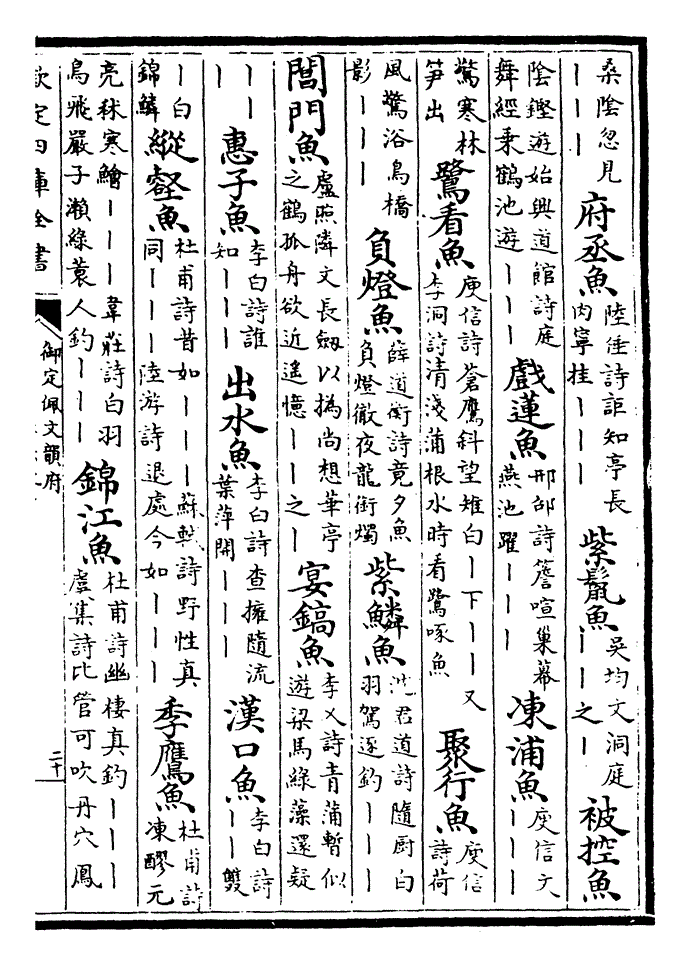 桑陰忽見｜｜｜府丞魚陸倕詩詎知亭長肉寧挂｜｜｜紫鬛魚吳均文洞庭｜｜之｜被控魚
陰鏗遊始興道館詩庭舞經乘鶴池遊｜｜｜戲蓮魚邢邵詩簷喧巢幕燕池躍｜｜｜凍浦魚庾信文｜｜｜
驚寒林笋出鷺看魚庾信詩蒼鷹斜望雉白｜下｜｜又李洞詩清淺蒲根水時看鷺啄魚聚行魚庾信詩荷
風驚浴鳥橋影｜｜｜負燈魚薛道衡詩竟夕魚負燈徹夜龍銜燭紫鱗魚沈君道詩隨厨白羽駕逐釣｜｜｜
閶門魚盧照隣文長劔以撝尚想華亭之鶴孤舟欲近遥憶｜｜之｜宴鎬魚李乂詩青蒲暫似遊梁馬綠藻還疑
｜｜｜惠子魚李白詩誰知｜｜｜出水魚李白詩查擁隨流葉萍開｜｜｜漢口魚李白詩｜｜雙
｜白錦鱗縱壑魚杜甫詩昔如｜｜｜蘇軾詩野性真同｜｜｜陸游詩退處今如｜｜｜季鷹魚杜甫詩凍醪元
亮秫寒鱠｜｜｜韋莊詩白羽鳥飛嚴子瀨綠蓑人釣｜｜｜錦江魚杜甫詩幽棲真釣｜｜｜虞集詩比管可吹丹穴鳳
欽定四庫全書
御定佩文韻府
二十